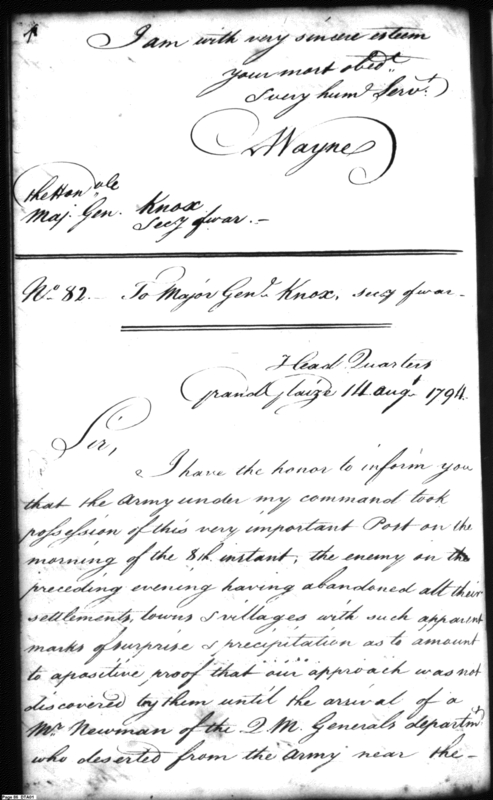 I am with very sincere esteem
your most obedt.
& very huml Servt.
A Wayne
the Honble
Maj. Gen. Knox
Secy of war.-
No. 82.- To Major Genl. Knox, secy of war-
Head Quarters
Grand Glaize 14 augt. 1794.
Sir,
I have the honor to inform you
that the army under my command took
possession of this very important Post on the
morning of the 8th. instant, the enemy on the
preceding evening having abandoned all their
settlements, towns & villages with such apparent
marks of surprise & precipitation as to amount
to a positive proof that our approach was not
discovered by them until the arrival of a
Mr. Newman of the Q M. Generals departmt
who deserted from the army near the-